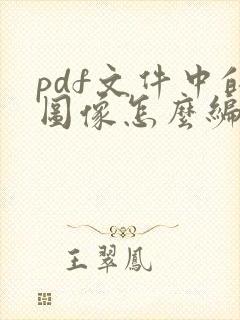 pdf文件中的
圖像怎麼編
王翠鳳